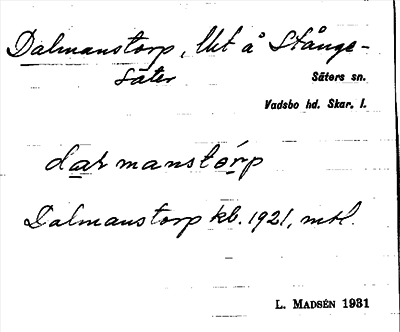 Dalmanstorp, lht å Stånge-
säter
Säters sn.
Vadsbo hd. Skar. l.
darmanstórp
Dalmanstorp kb. 1921, mtl.
L. MADSÉN 1931